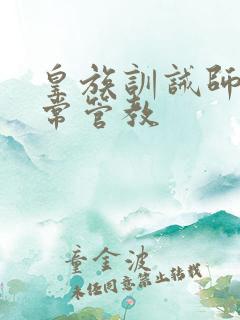 皇族訓誡師
常管教
童金波
未经同意禁止转载